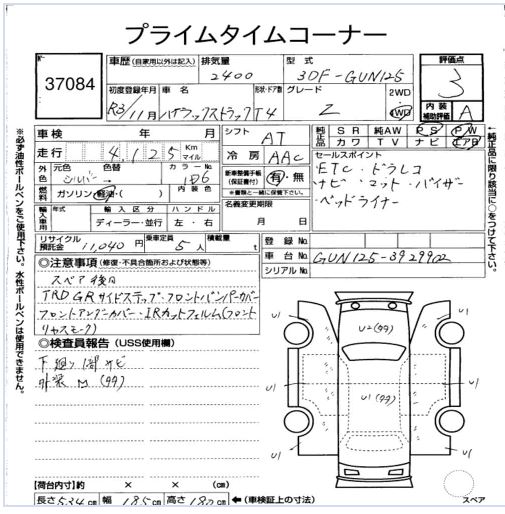 プライムタイムコーナー
№
37084
車歴 (自家用以外は記入)
排気量
2400
型式
3DF-GUN125
評価点
3
初度登録年月
R3/11月
車名
ハイラックストラック
形状・ドア数
T4
グレード
Z
2WD
4WD
内装補助評価
A
車検 年 月
走行 4,125 Km マイル
シフト
AT
純正品
SR 純AW PS PW
カワ TV ナビ エアB
外色
元色
シルバー
色替
カラーNo.
1D6
冷房
AAC
セールスポイント
・ETC・ドラレコ
・ナビ・マット・バイザー
・ベッドライナー
燃料
ガソリン・軽油・( )
内装色
新車整備手帳(保証書付)
有・無
※書類と一緒に保管下さい。
輸入車用
年式
輸入区分
ハンドル
ディーラー・並行
左・右
名義変更期限
月 日
リサイクル預託金
11,040円
乗車定員
5人
積載量
t
登録No.
車台No.
GUN125-3929902
シリアルNo.
◎注意事項 (修復・不具合箇所および状態等)
スペア後日
TRD GRサイドステップ・フロントバンパーカバー
フロントアンダーカバー・IRカットフィルム(フロント
リヤスモーク)
◎検査員報告 (USS使用欄)
下廻り1部サビ
外装 M (99)
U2(99)
U1(99)
U1
U1
U1
U1
U1
U1
【荷台内寸】約 × × (cm)
長さ534cm 幅185cm 高さ180cm ←(車検証上の寸法)
スペア
※必ず油性ボールペンをご使用下さい。水性ボールペンは使用できません。
←純正品に限り該当に○をつけて下さい。